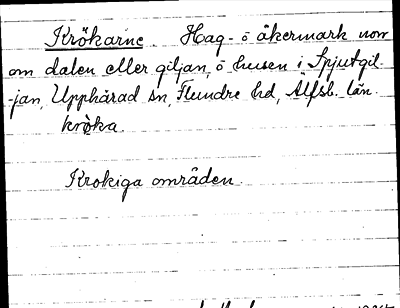 Krökarne. Hag- o åkermark norr
om dalen eller giljan, ö husen i Spjutgil-
-jan, Upphärad sn, Flundre hd, Älfsb. län.
krøka.
Krokiga områden.